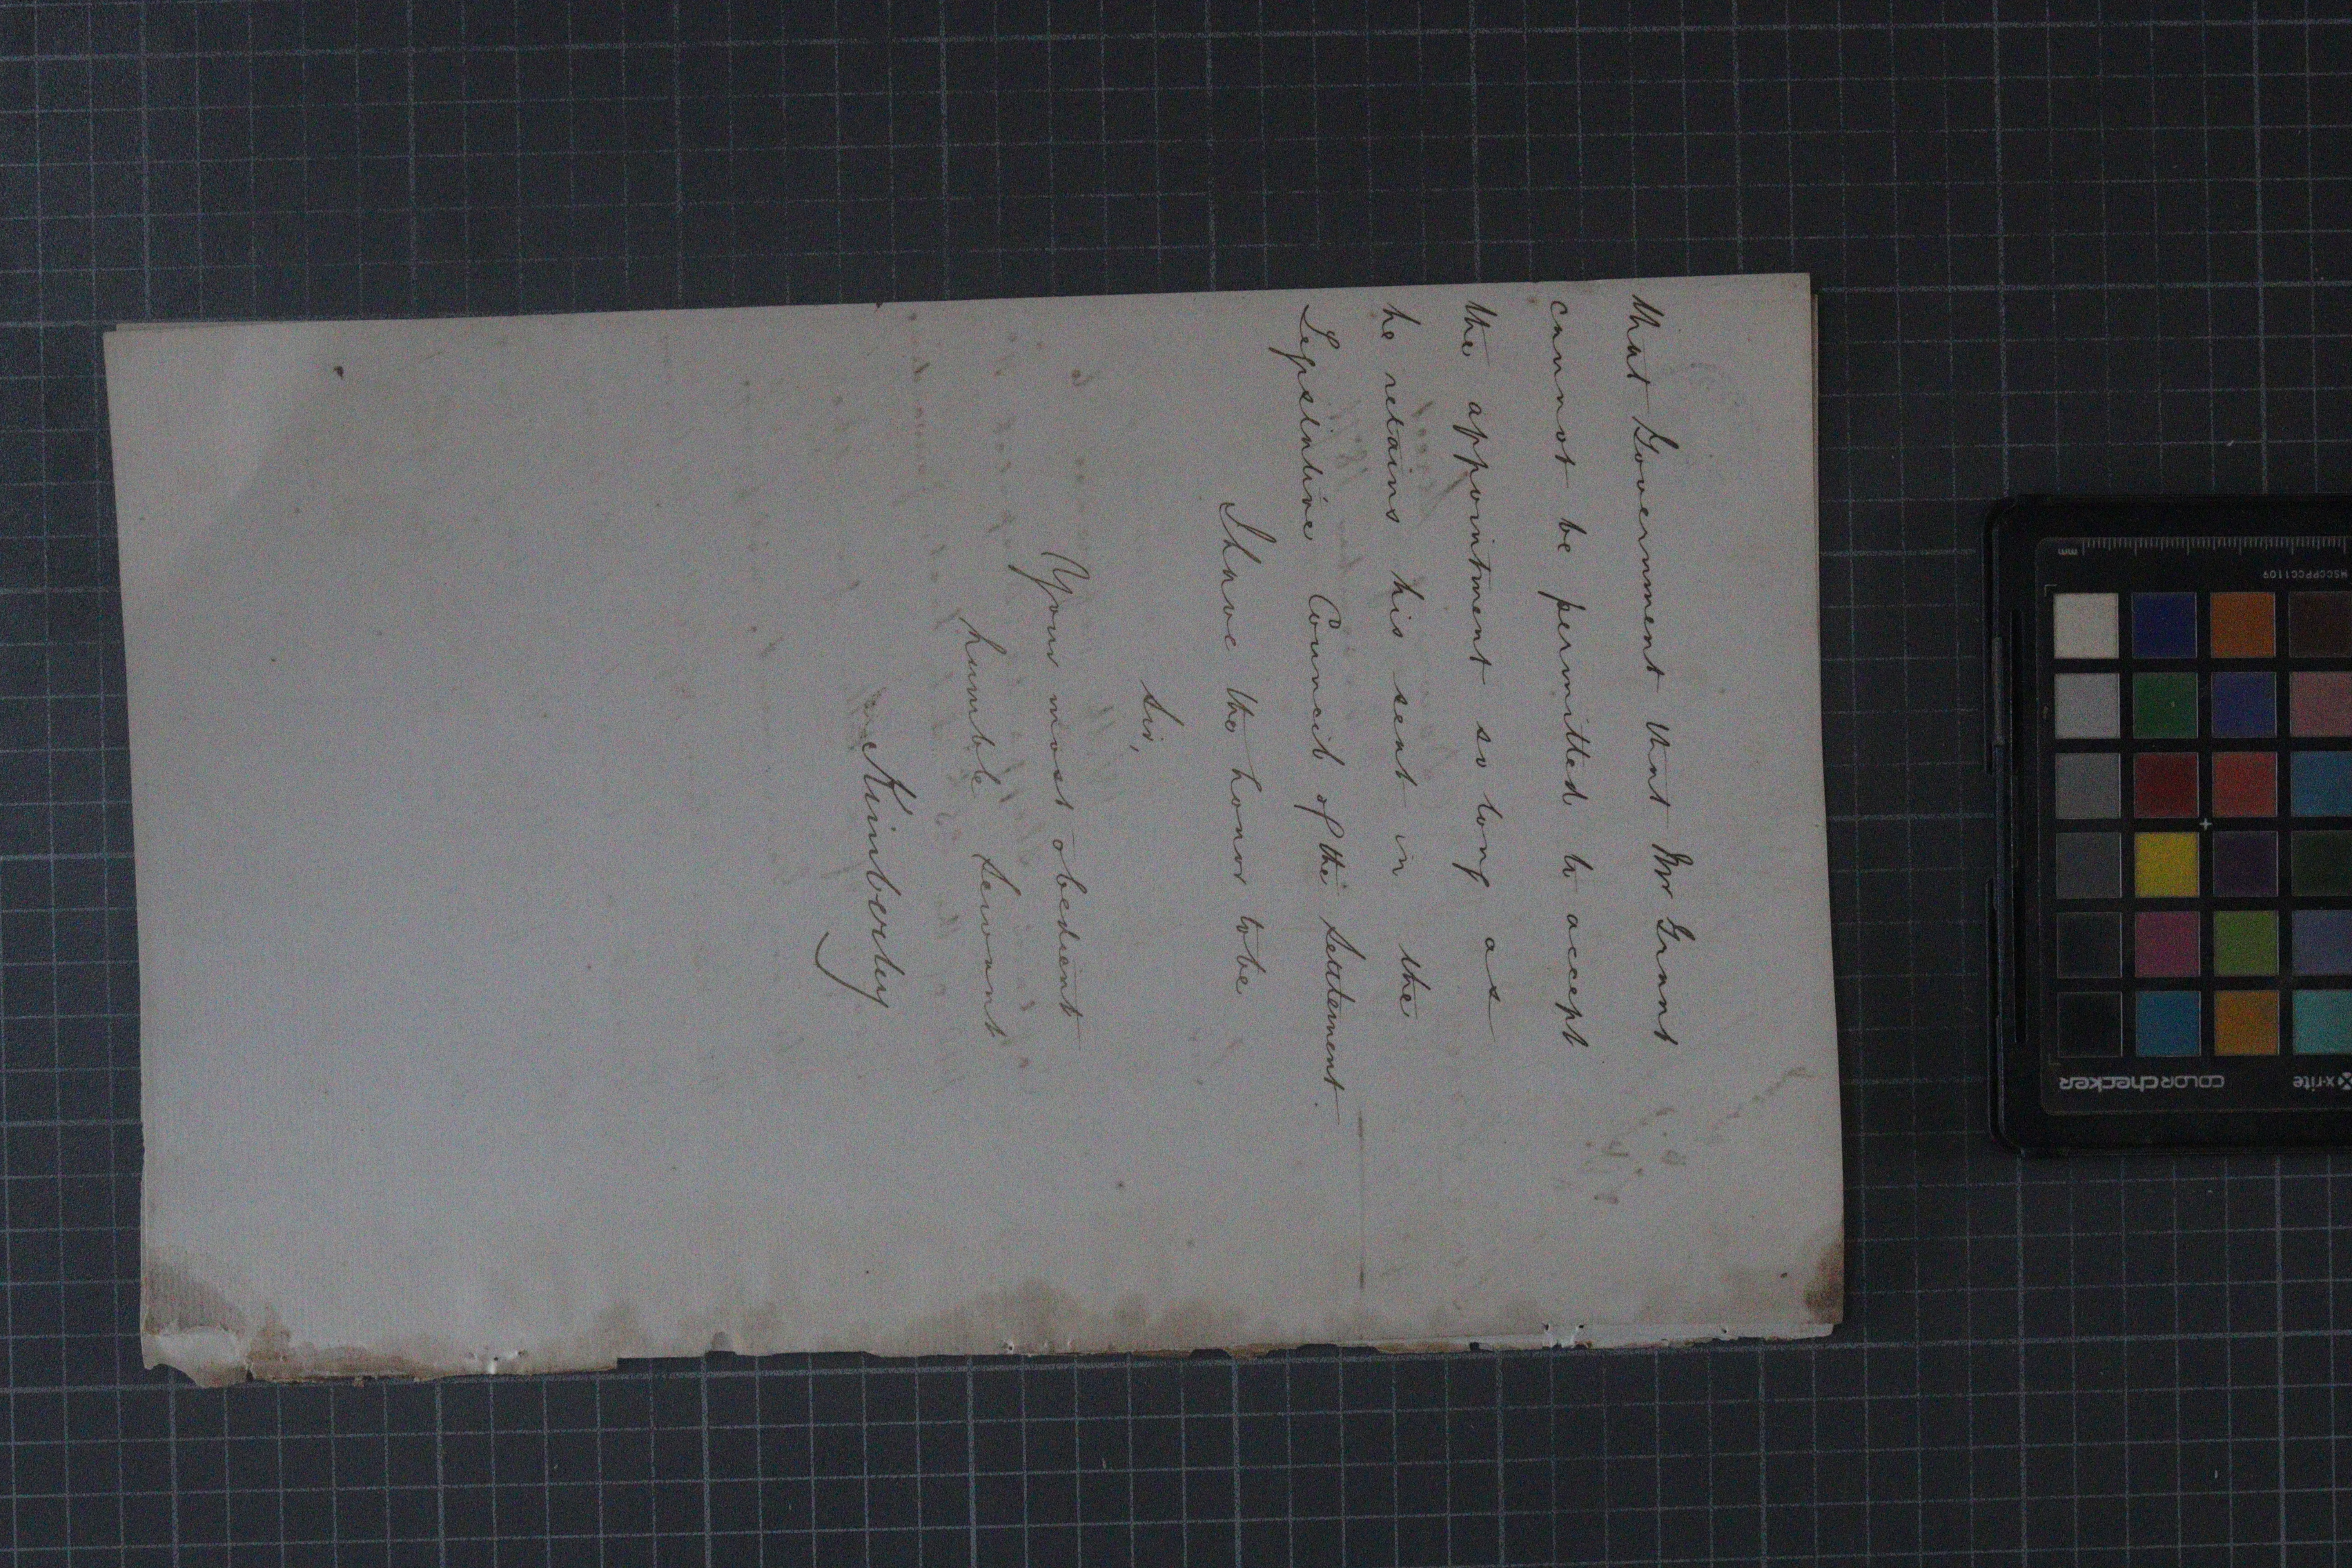 that Government that Mr Grant
cannot be permitted to accept
the appointment so long as
he retains his seat in the
Legislative Council of the Settlement.
I have the honor to be
Sir,
Your most obedient
humble Servant
Kimberley
mm
HSCCPPCC1109
colorchecker
x-rite